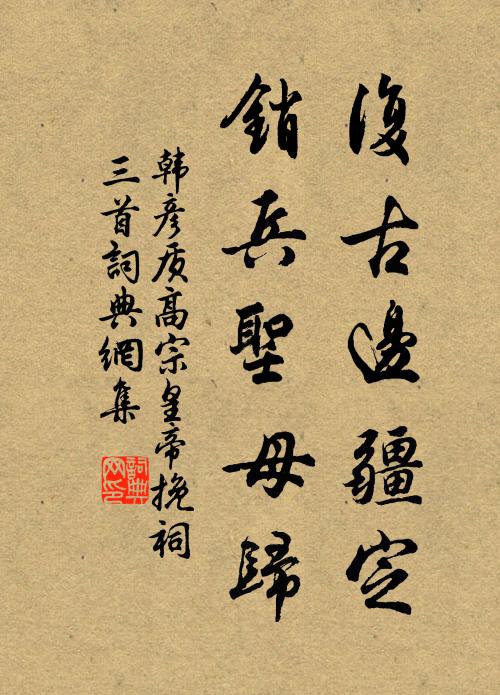 復古邊疆定
銷兵聖母歸
韩彦质高宗皇帝挽祠
三首詞典網集
詞典
网印